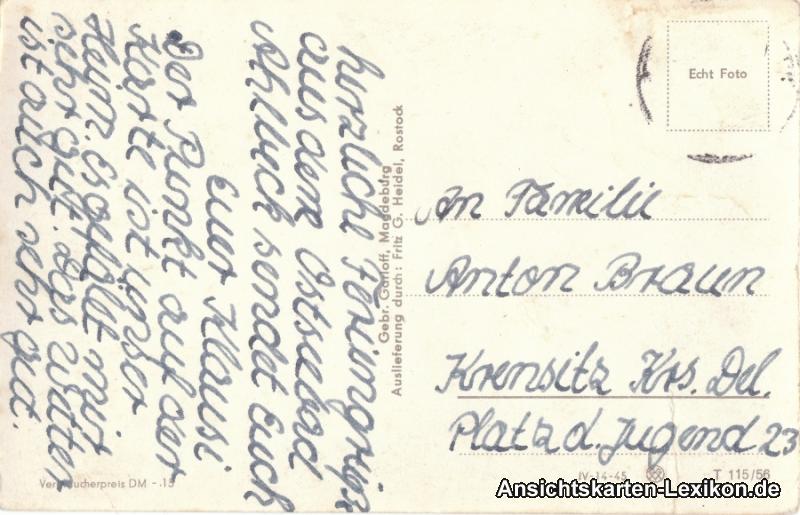 herzliche Feriengrüße
aus dem Ostseebad
Ahlbeck sendet Euch
Euer Klausi
Der Punkt auf der
Karte ist unser
Heim. Es gefällt mir
sehr gut. Das Wetter
ist auch sehr gut.
Gebr. Garloff, Magdeburg
Auslieferung durch: Fritz G. Heidel, Rostock
Echt Foto
An Familie
Anton Braun
Krensitz Krs. Del.
Platz d. Jugend 23
Verbraucherpreis DM -.15
IV-14-45
T 115/56
Ansichtskarten-Lexikon.de